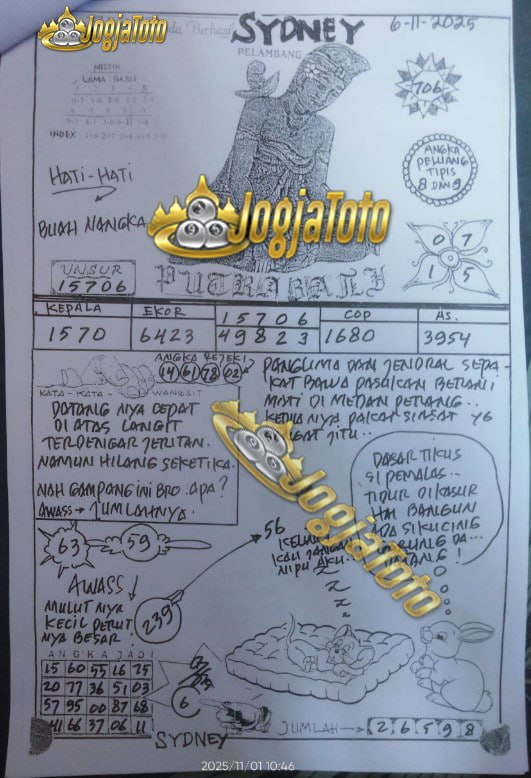 JogjaToto
SYDNEY
6-11-2025
PELAMBANG
MISTIK
LAMA BARU
INDEX
706
ANGKA
PELUANG
TIPIS
8 DAN 9
HATI-HATI
BUAH NANGKA
JogjaToto
0 7
1 5
UNSUR
15706
PUTRA BALI
KEPALA
EKOR
15706
COP
AS.
1570
6423
49823
1680
3954
ANGKA REJEKI
14 61 78 02
KATA - KATA - WANGSIT
DATANG NYA CEPAT
DI ATAS LANGIT
TERDENGAR JERITAN.
NAMUN HILANG SEKETIKA.
NAH GAMPANG INI BRO. APA?
AWASS → JUMLAHNYA.
PANGLIMA DAN JENDRAL SEPA-
KAT BAWA PASUKAN BERANI
MATI DI MEDAN PERANG..
KEDUA NYA PAKAI SIASAT YG
JITU..
JogjaToto
DASAR TIKUS
SI PEMALAS...
TIDUR DIKASUR
HAI BANGUN
ADA SI KUCING
63
59
56
KAU JANGAN
NIPU AKU..
Z
Z
Z
Z
AWASS
MULUT NYA
KECIL PERUT
NYA BESAR!
239
ANGKA JADI
15 60 55 16 75
20 77 36 51 03
57 95 00 87 68
41 66 37 06 11
6
SYDNEY
JUMLAH → 2 6 5 9 8
2025/11/01 10:46